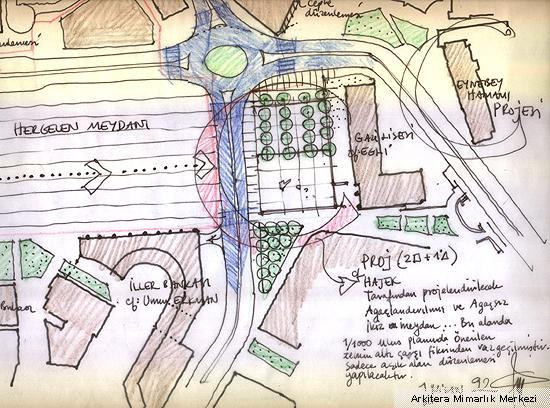 Cephe
düzenlemesi
EYNEBEY
HAMAMI
PROJESİ
HERGELEN MEYDANI
GAZİ LİSESİ
EGLİ
İLLER BANKASI
PROJ (2□ + 1Δ)
HAJEK
Tarafından projelendirilecek
Ağaçlandırılmış ve Ağaçsız
İkiz meydan... Bu alanda
1/1000 Ulus planında önerilen
zemin altı çarşı fikrinden vazgeçilmiştir.
Sadece açık alan düzenlemesi
yapılacaktır.
92
Arkitera Mimarlık Merkezi